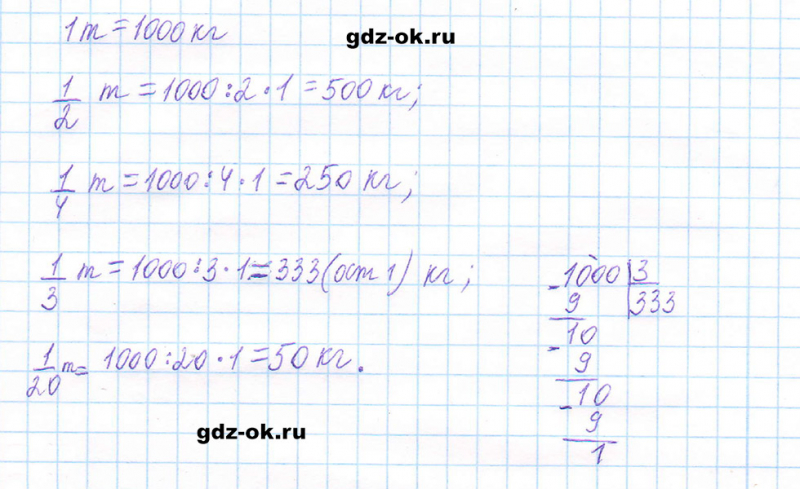 1т = 1000 кг
gdz-ok.ru
1/2 т = 1000 : 2 · 1 = 500 кг;
1/4 т = 1000 : 4 · 1 = 250 кг;
1/3 т = 1000 : 3 · 1 = 333 (ост 1) кг;
1/20 т = 1000 : 20 · 1 = 50 кг.
gdz-ok.ru
- 1000 | 3
9 | 333
- 10
9
- 10
9
1